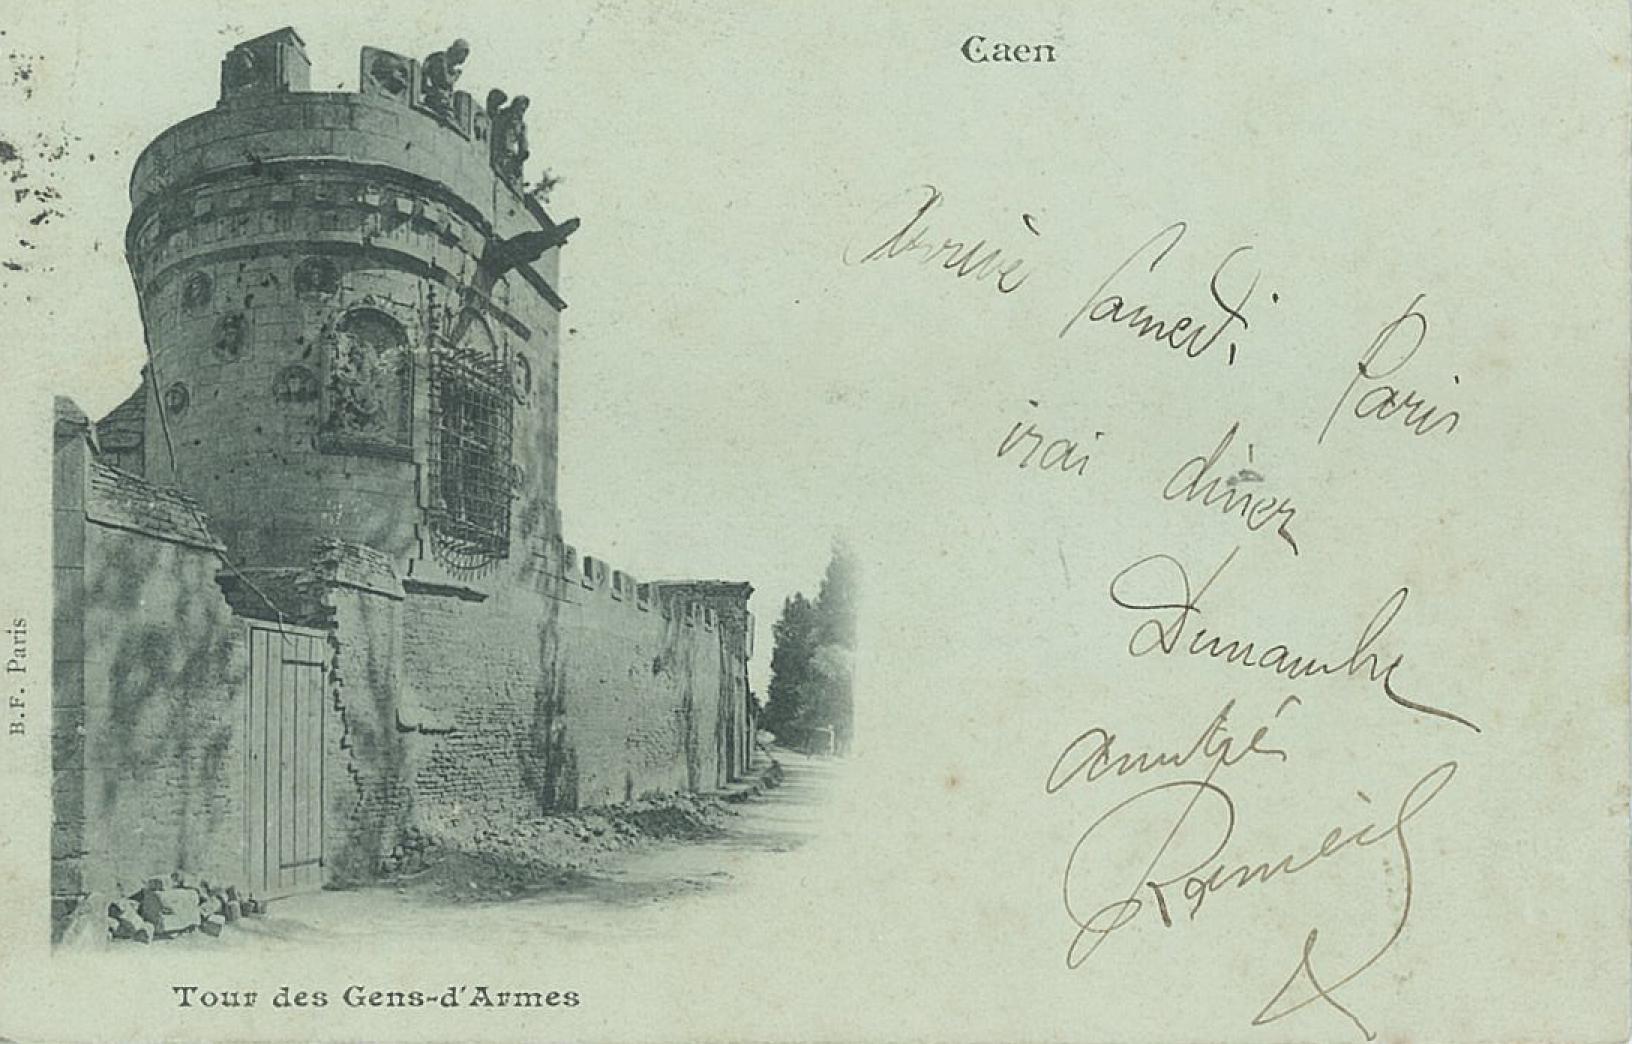 Caen
Arrive Samedi Paris
irai dîner
Dimanche
amitiés
B.F. Paris
Tour des Gens-d'Armes